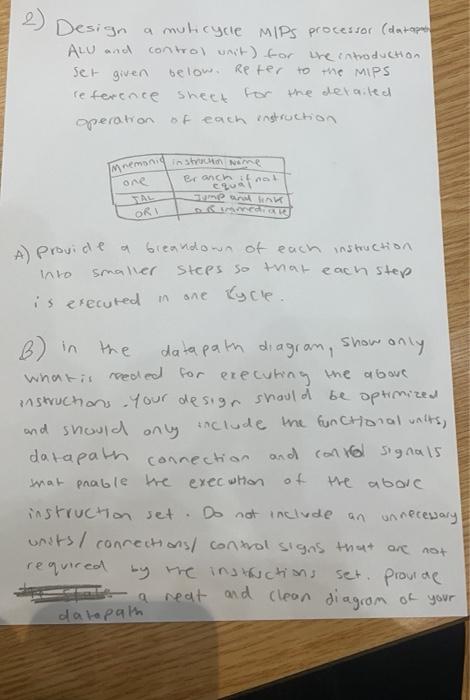 2) Design a muticycle MIPs processor (datapath
ALU and control unit) for the introduction
set given below. Refer to the MIPS
reference sheet for the detailed
operation of each instruction
Mnemonic instruction Name
one Branch if not equal
JAL Jump and link
ORI OR immediate
A) Provide a breakdown of each instruction
into smaller steps so that each step
is executed in one Kycle.
B) in the datapath diagram, show only
what is needed for executing the above
instructions. Your design should be optimized
and should only include the functional units,
datapath connection and control signals
that enable the execution of the above
instruction set. Do not include an unnecessary
units/connections/control signs that are not
required by the instructions set. Provide
a neat and clean diagram of your
datapath